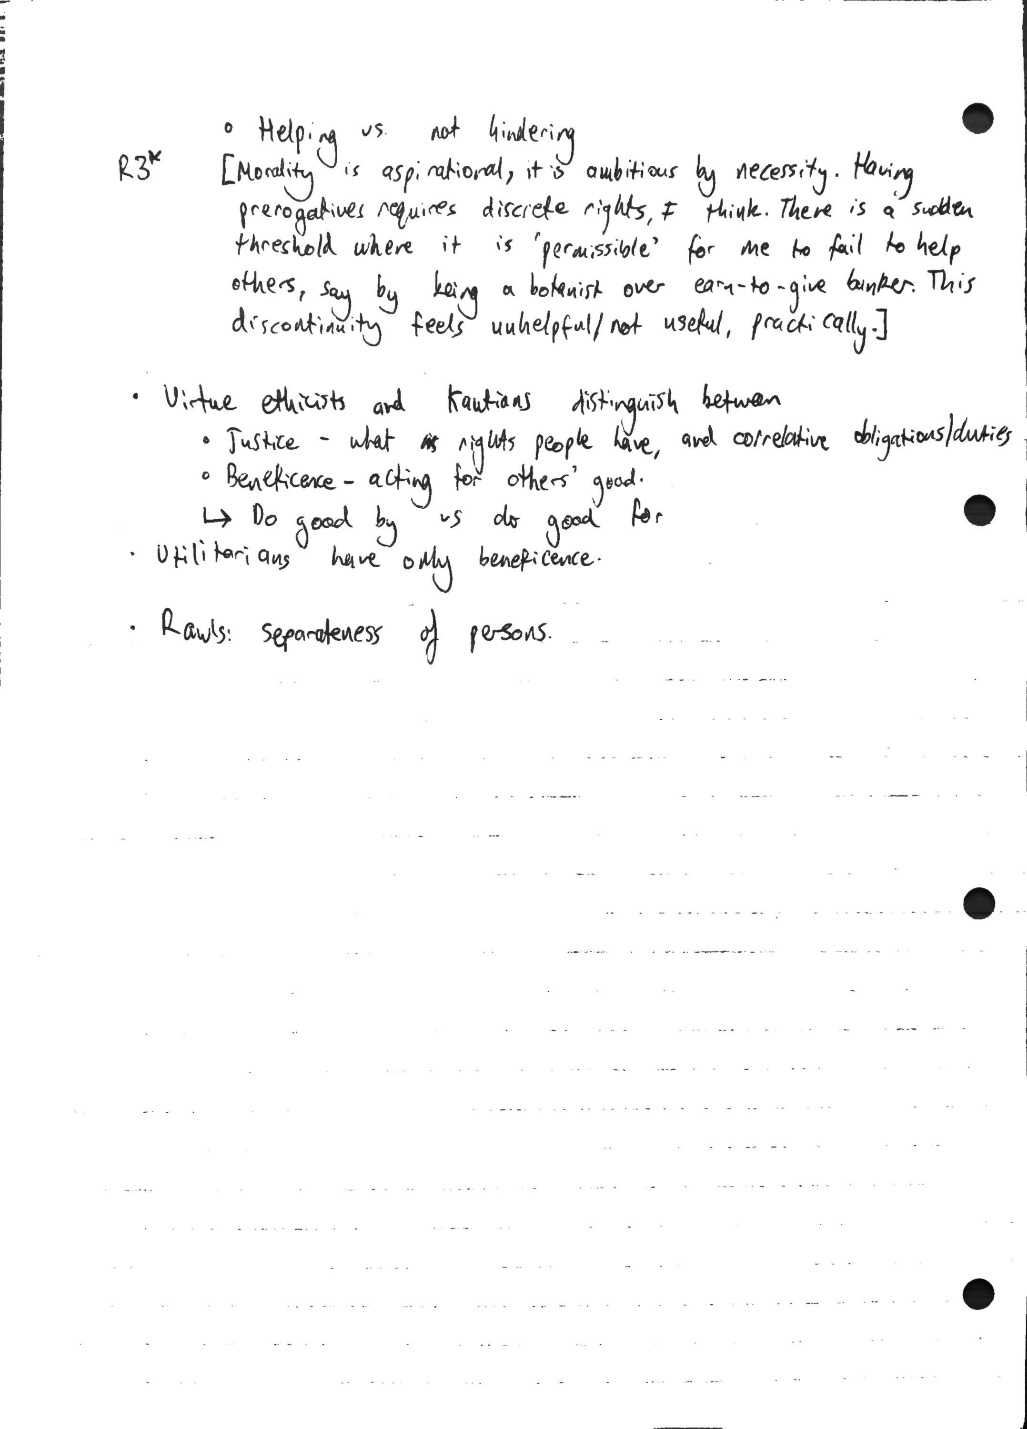 ◦ Helping vs. not hindering
R3* [Morality is aspirational, it is ambitious by necessity. Having
prerogatives requires discrete rights, I think. There is a sudden
threshold where it is 'permissible' for me to fail to help
others, say by being a botanist over earn-to-give banker. This
discontinuity feels unhelpful/not useful, practically.]
• Virtue ethicists and Kantians distinguish between
◦ Justice - what rights people have, and correlative obligations/duties
◦ Beneficence - acting for others' good.
↳ Do good by vs do good for
• Utilitarians have only beneficence.
• Rawls: separateness of persons.